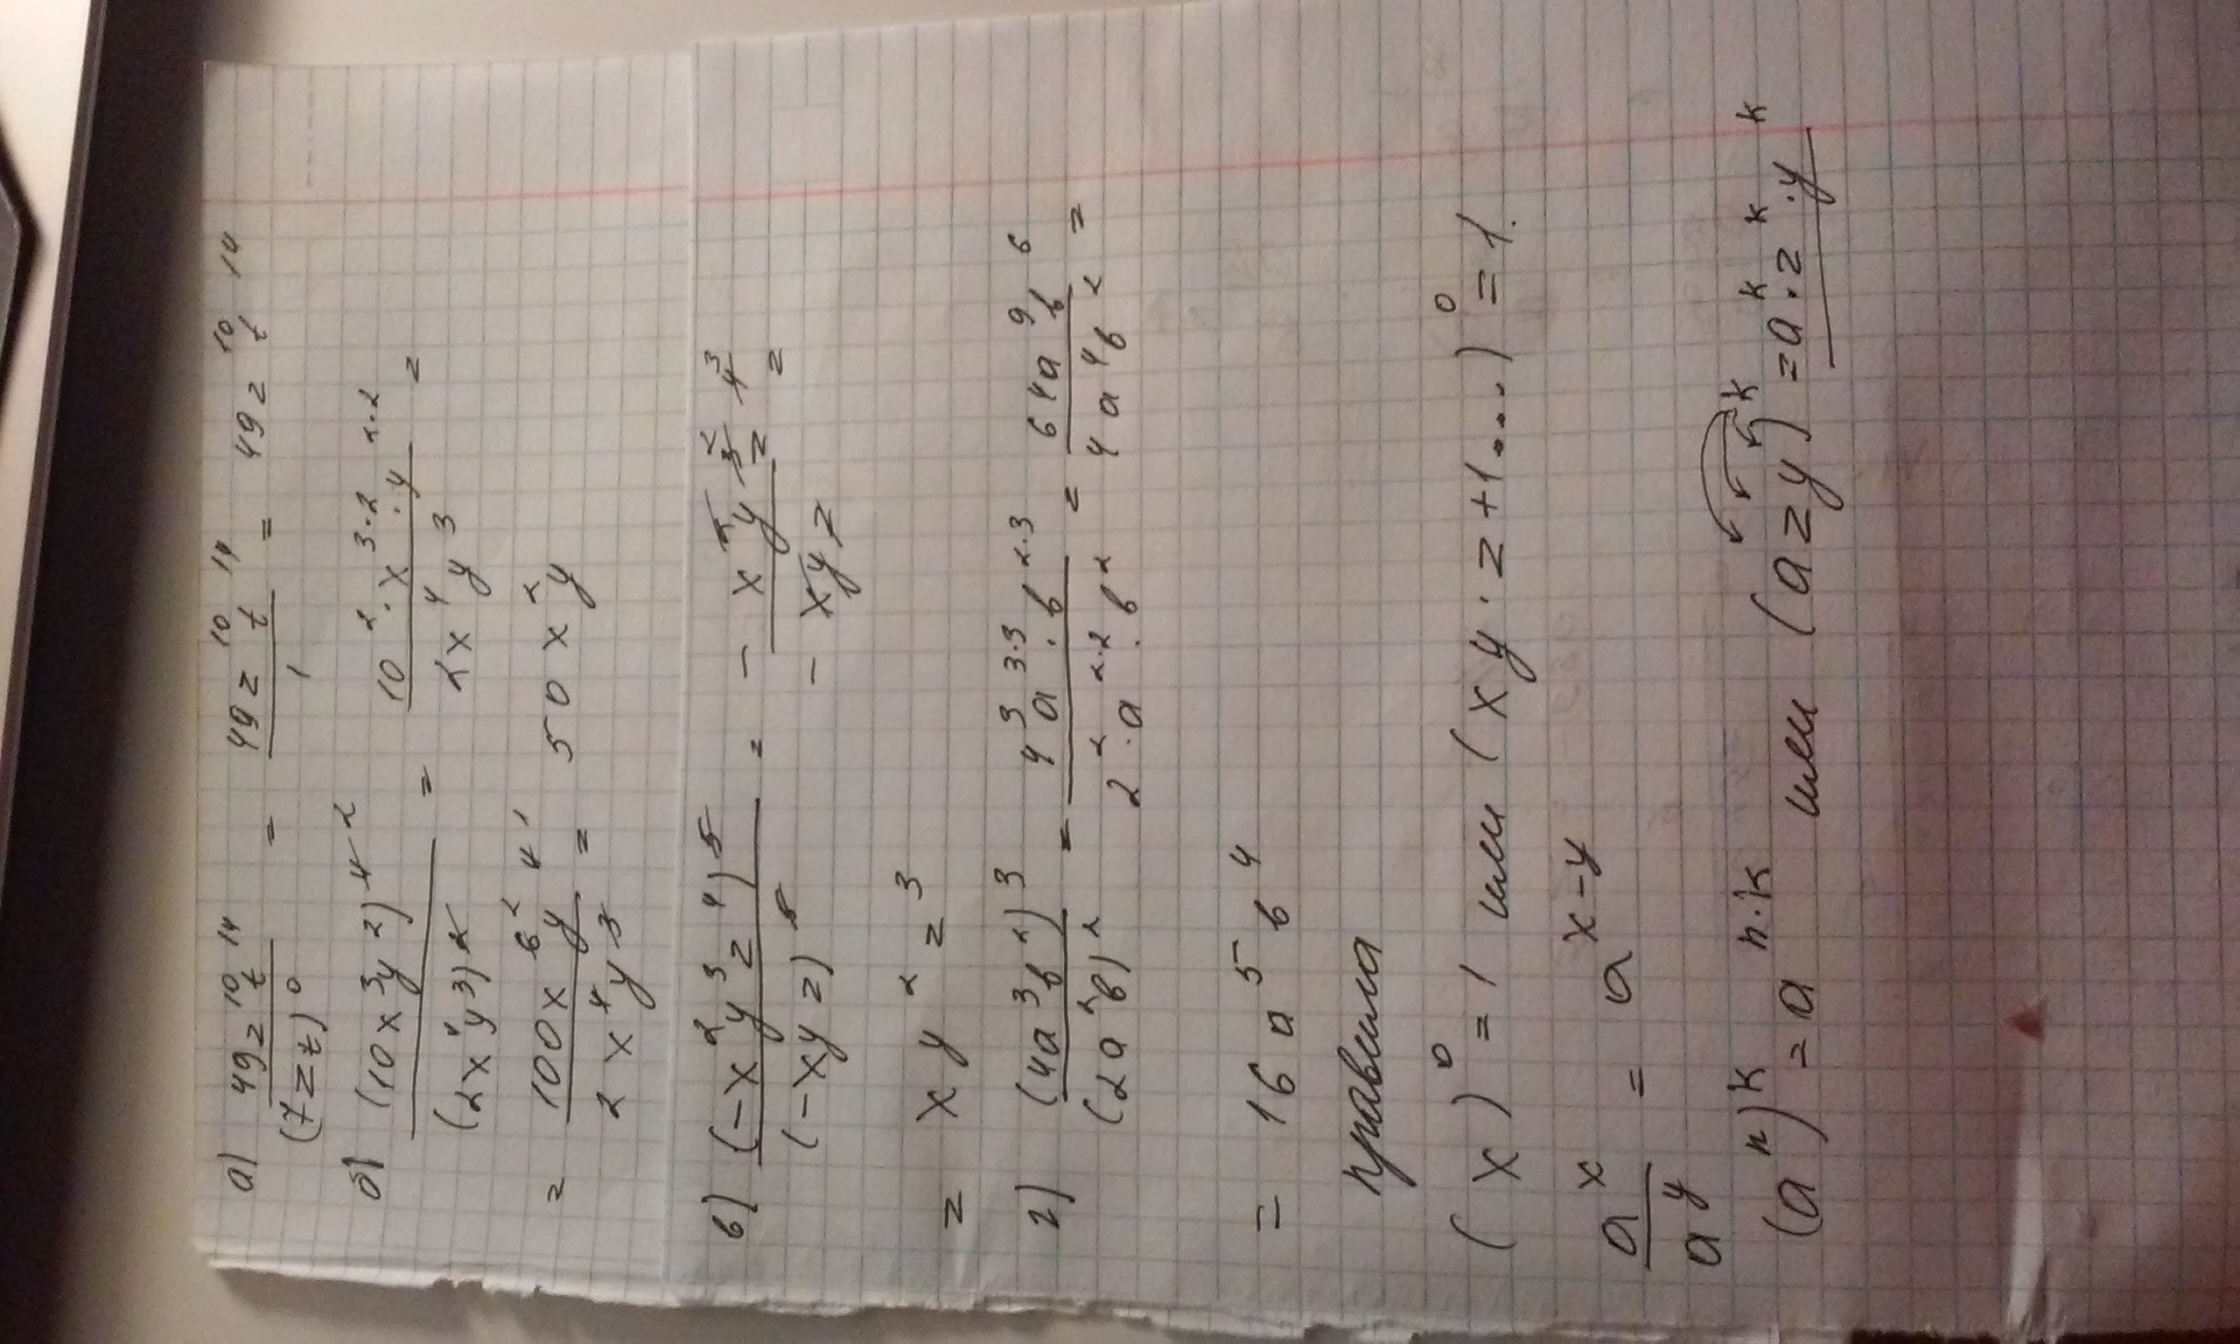 а) 49z¹⁰t¹⁴ / (7zt)⁰ = 49z¹⁰t¹⁴ / 1 = 49z¹⁰t¹⁴
б) (10x³y²)⁴ ² / (2x⁴y³)² = 10² · x³·² · y²·² / 2x⁴y³ =
= 100x⁶ ² y⁴ ¹ / 2x⁴y³ = 50x²y
в) (-x²y³z⁴)⁵ / (-xyz)⁵ = - x²y³ ² z⁴ ³ / - xyz =
= xy²z³
г) (4a³b²)³ / (2a²b)² = 4³a³·³ · b²·³ / 2² · a²·² · b² = 64a⁹b⁶ / 4a⁴b² =
= 16a⁵b⁴
правила
(x)⁰ = 1 или (xy · z + 1....)⁰ = 1.
aˣ / aʸ = aˣ⁻ʸ
(aⁿ)ᵏ = aⁿ·ᵏ или (azy)ᵏ = aᵏ · zᵏ · yᵏ